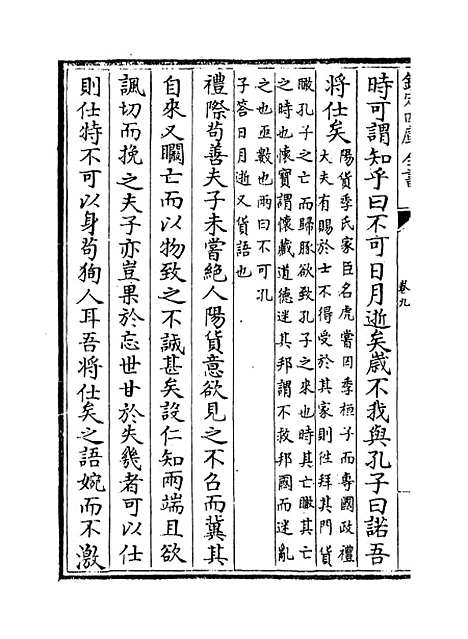 欽定四庫全書
卷九
時可謂知乎曰不可日月逝矣歲不我與孔子曰諾吾
將仕矣
陽貨季氏家臣名虎嘗囚季桓子而專國政禮
大夫有賜於士不得受於其家則徃拜其門貨
瞰孔子之亡而歸豚欲致孔子之來也時其亡瞰其亡
之時也懷寳謂懷藏道德迷其邦謂不救邦國而迷亂
之也亟數也兩曰不可孔
子答日月逝又貨語也
禮際苟善夫子未嘗絶人陽貨意欲見之不召而冀其
自來又矙亡而以物致之不誠甚矣設仁知兩端且欲
諷切而挽之夫子亦豈果於忘世甘於失幾者可以仕
則仕特不可以身茍狥人耳吾將仕矣之語婉而不激